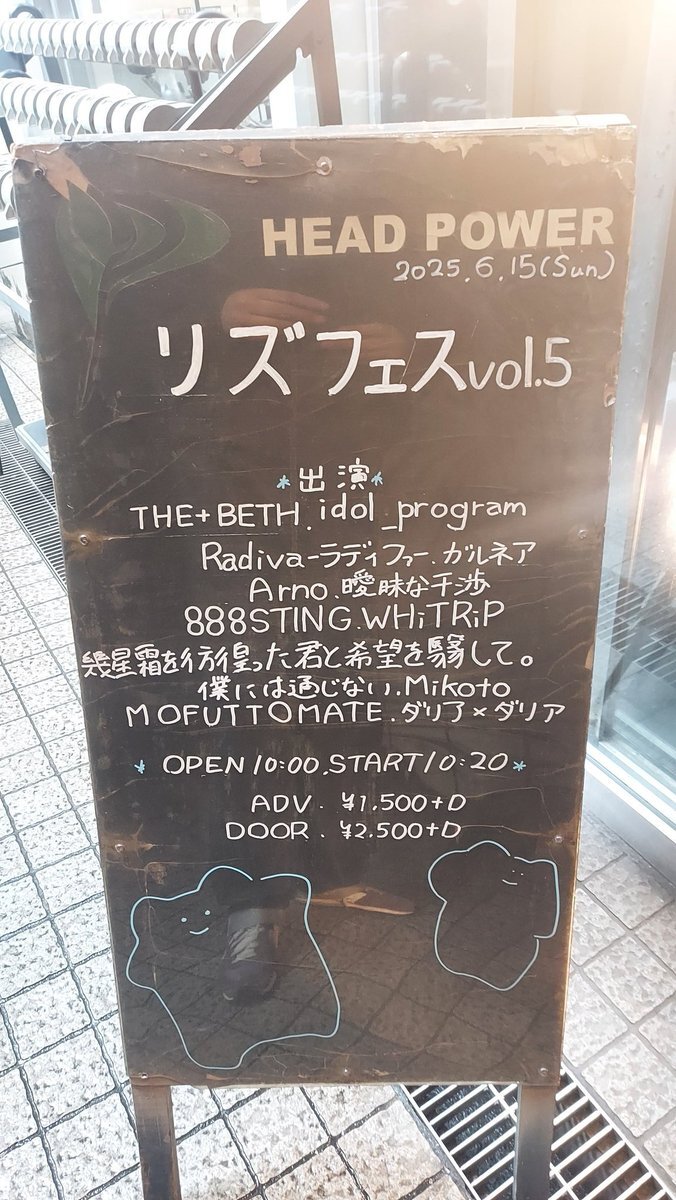 HEAD POWER
2025.6.15(Sun)
リズフェスvol.5
*出演*
THE+BETH.idol_program
Radiva-ラディファー.ガルネア
Arno.曖昧な干渉
888STING.WHiTRiP
幾星霜を彷徨った君と希望を騒して。
僕には通じない.Mikoto
MOFUTTOMATE.ダリア×ダリア
*OPEN10:00.START10:20*
ADV. ¥1.500+D
DOOR. ¥2.500+D